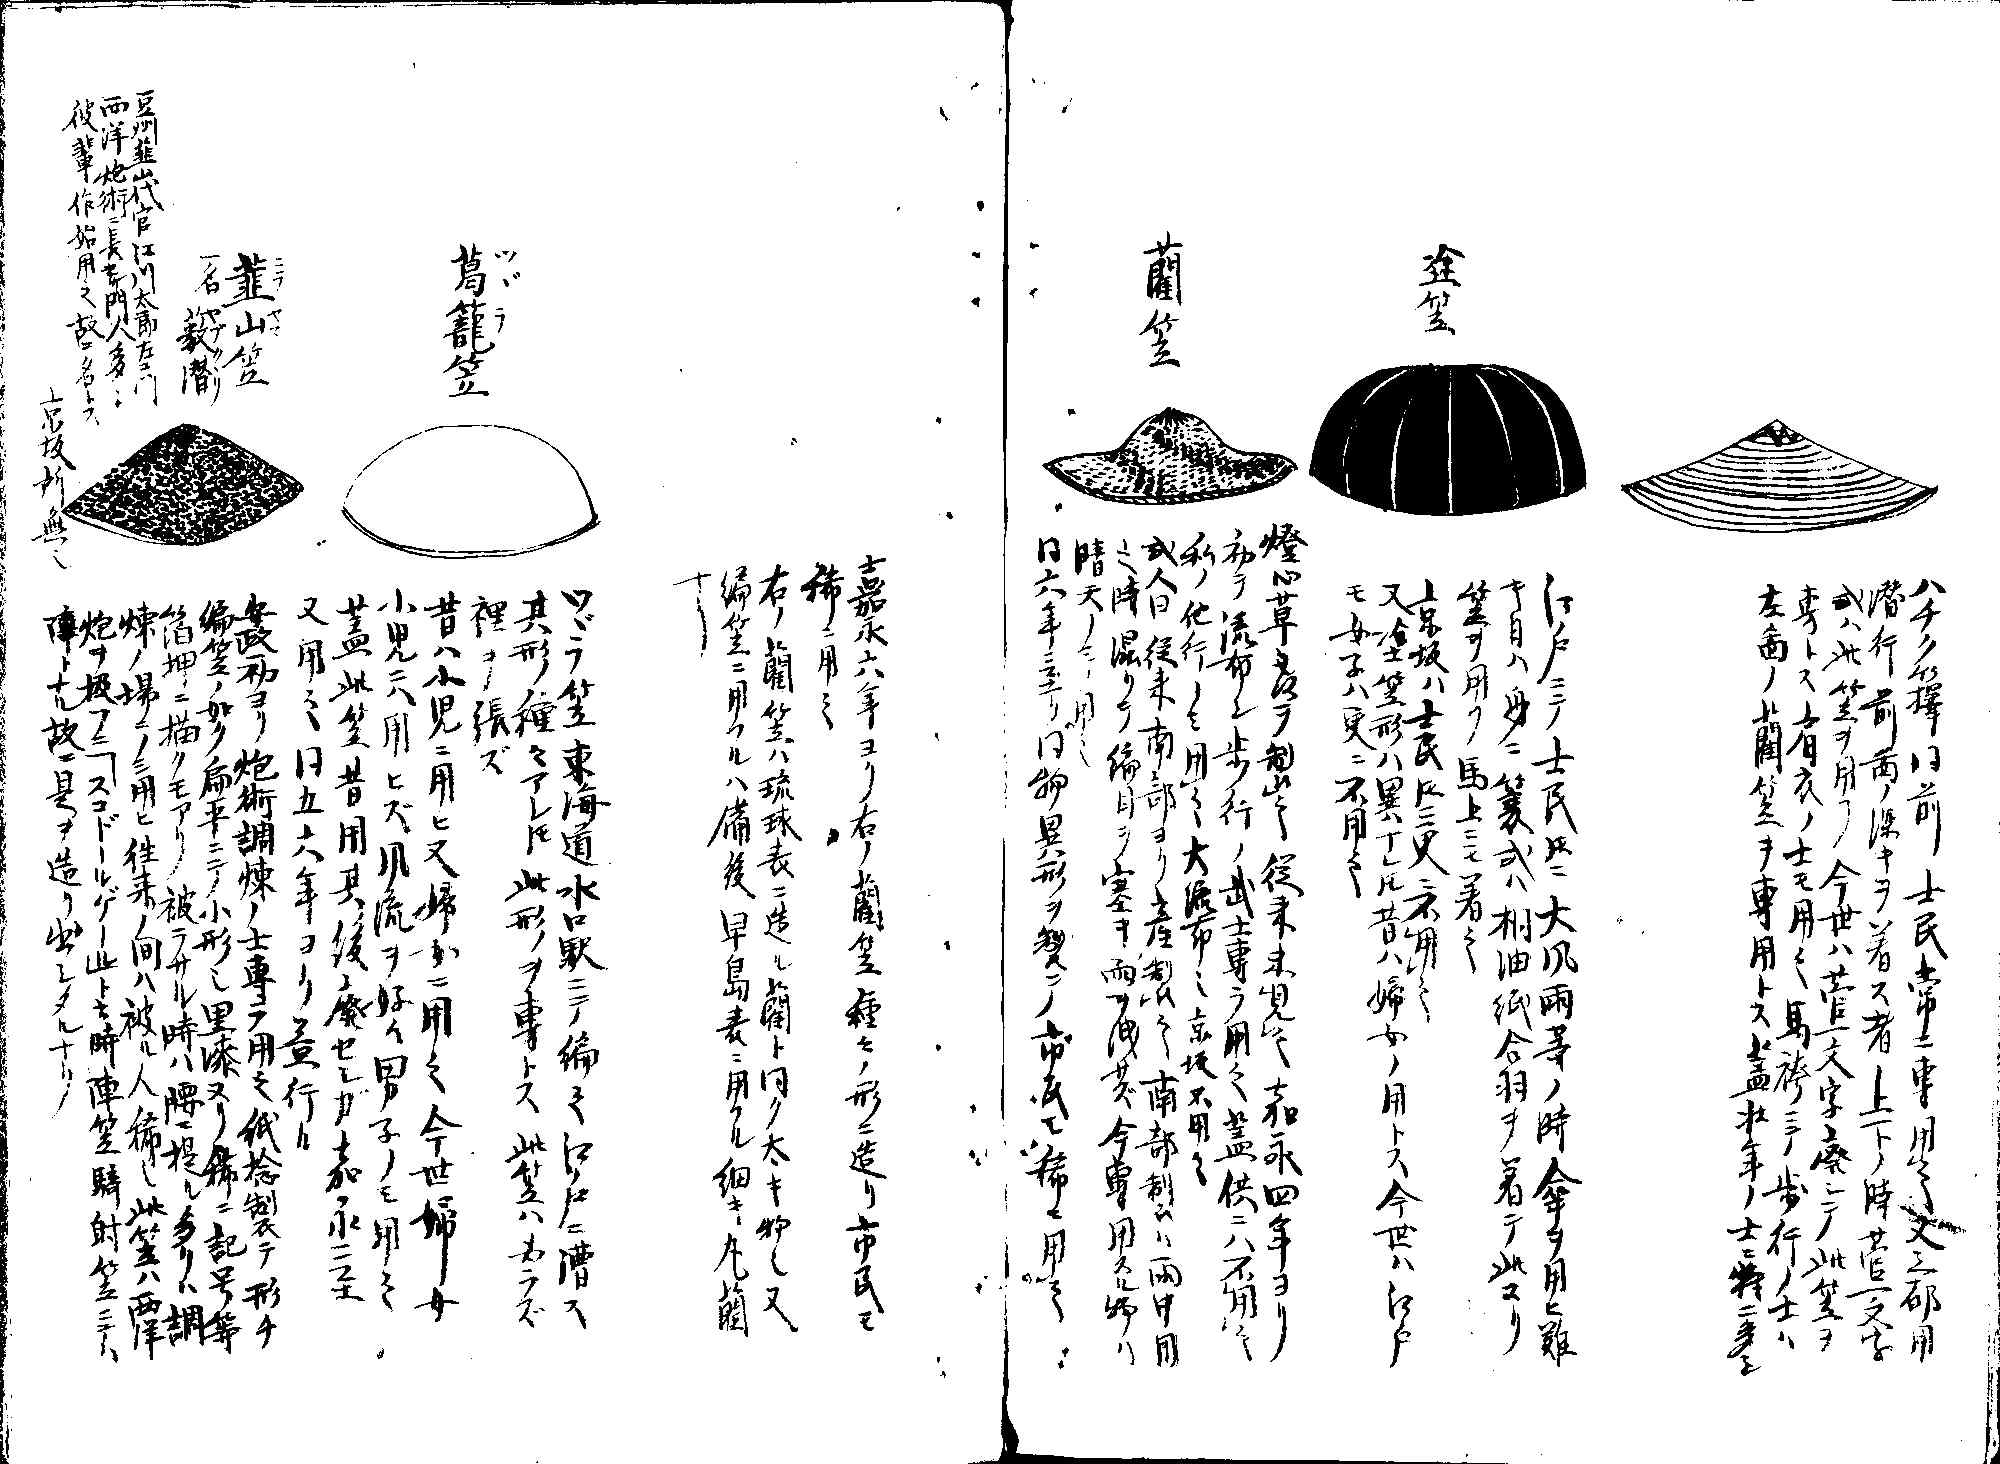 ハチク籜同前 士民常ニ専用之 又三都用
潜行前 両ノ深キヲ着ス者 上下ノ時菅一文字
或ハ此笠ヲ用フ 今世ハ菅一文字廃シテ此笠ヲ
専トス 有衣ノ士モ用之 馬袴ニテ歩行ノ士ハ
左図ノ藺笠ヲ専用トス 蓋壮年ノ士ニ特ニ多シ
塗笠
江戸ニテ士民トモニ大風雨等ノ時傘ヲ用ヒ難
キ日ハ必ズ簑或ハ桐油紙合羽ヲ着テ此
笠ヲ用フ 馬上ニモ着之
京坂ハ士民トモニ更ニ不用之
又塗笠形ハ異ナレトモ昔ハ婦女ノ用トス 今世ハ江戸
モ女子ハ更ニ不用之
藺笠
燈心草ヲ以テ製之 従来未見之 嘉永四年ヨリ
初テ流布シ歩行ノ武士専ラ用之 蓋供ニハ不用之
私ノ他行ノミ用之 大流布之 京坂不用之
或人曰 従来南部ヨリ産製之 南部製ハ雨中用
之時湿リテ編目ヲ塞キ雨ヲ洩サズ 今専用スル物ハ
晴天ノミニ用之
同六年ニ至リ同物異形ヲ製シテ市民モ稀ニ用之
嘉永六年ヨリ右ノ藺笠種々ノ形ニ造リ市民モ
稀ニ用之
右ノ藺笠ハ琉球表ニ造ル藺ト同ク太キ物也 又
編笠ニ用フルハ備後早島表ニ用フル細キ丸藺
ナリ
葛籠笠
ツヾラ
ツヾラ笠 東海道水口駅ニテ編之 江戸ニ漕ス
其形種々アレトモ此形ヲ専トス 此笠ハ必ラズ
裡ヲ張ズ
昔ハ小児ニ用ヒ又婦女ニ用之 今世婦女
小児ニハ用ヒズ 風流ヲ好ム男子ノミ用之
蓋此笠昔用 其後ハ廃セシガ嘉永ニ至
又用之 同五六年ヨリ並行ル
韮山笠
ニラヤマ
一名 薮潜
ヤブクヾリ
豆州韮山代官江川太郎左エ門
西洋炮術ニ長ジ門人多シ
彼輩作始用之 故ニ名トス
京坂所無之
安政初ヨリ炮術調煉ノ士専ラ用之 紙捻製テ形チ
編笠ノ如ク扁平ニテ小形也 黒漆ヌリ 稀ニ記号等
箔押ニ描クモアリ 被ラザル時ハ腰ニ提ル多リハ調
煉ノ場ニノミ用ヒ往来ノ間ハ被ル人稀也 此笠ハ西洋
炮ヲ扱フニ「スコドールゲー此ト云時 陣笠騎射笠ニテハ
障トナル故ニ是ヲ造リ出シタルナリ